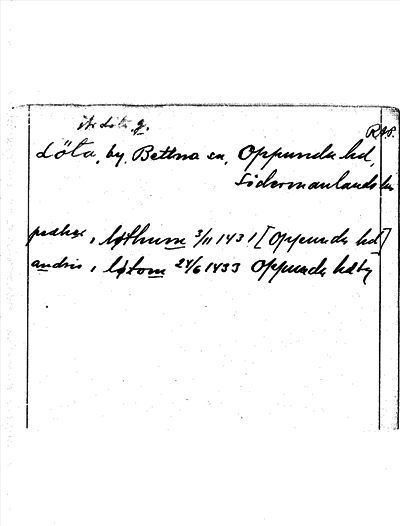 RAP.
Löta, by, Bettna sn, Oppunda hd,
Södermanlands län
pædher, i løthum 3/11 1431 [Oppunda hd]
andris, i løtom 24/6 1433 Oppunda hdtg